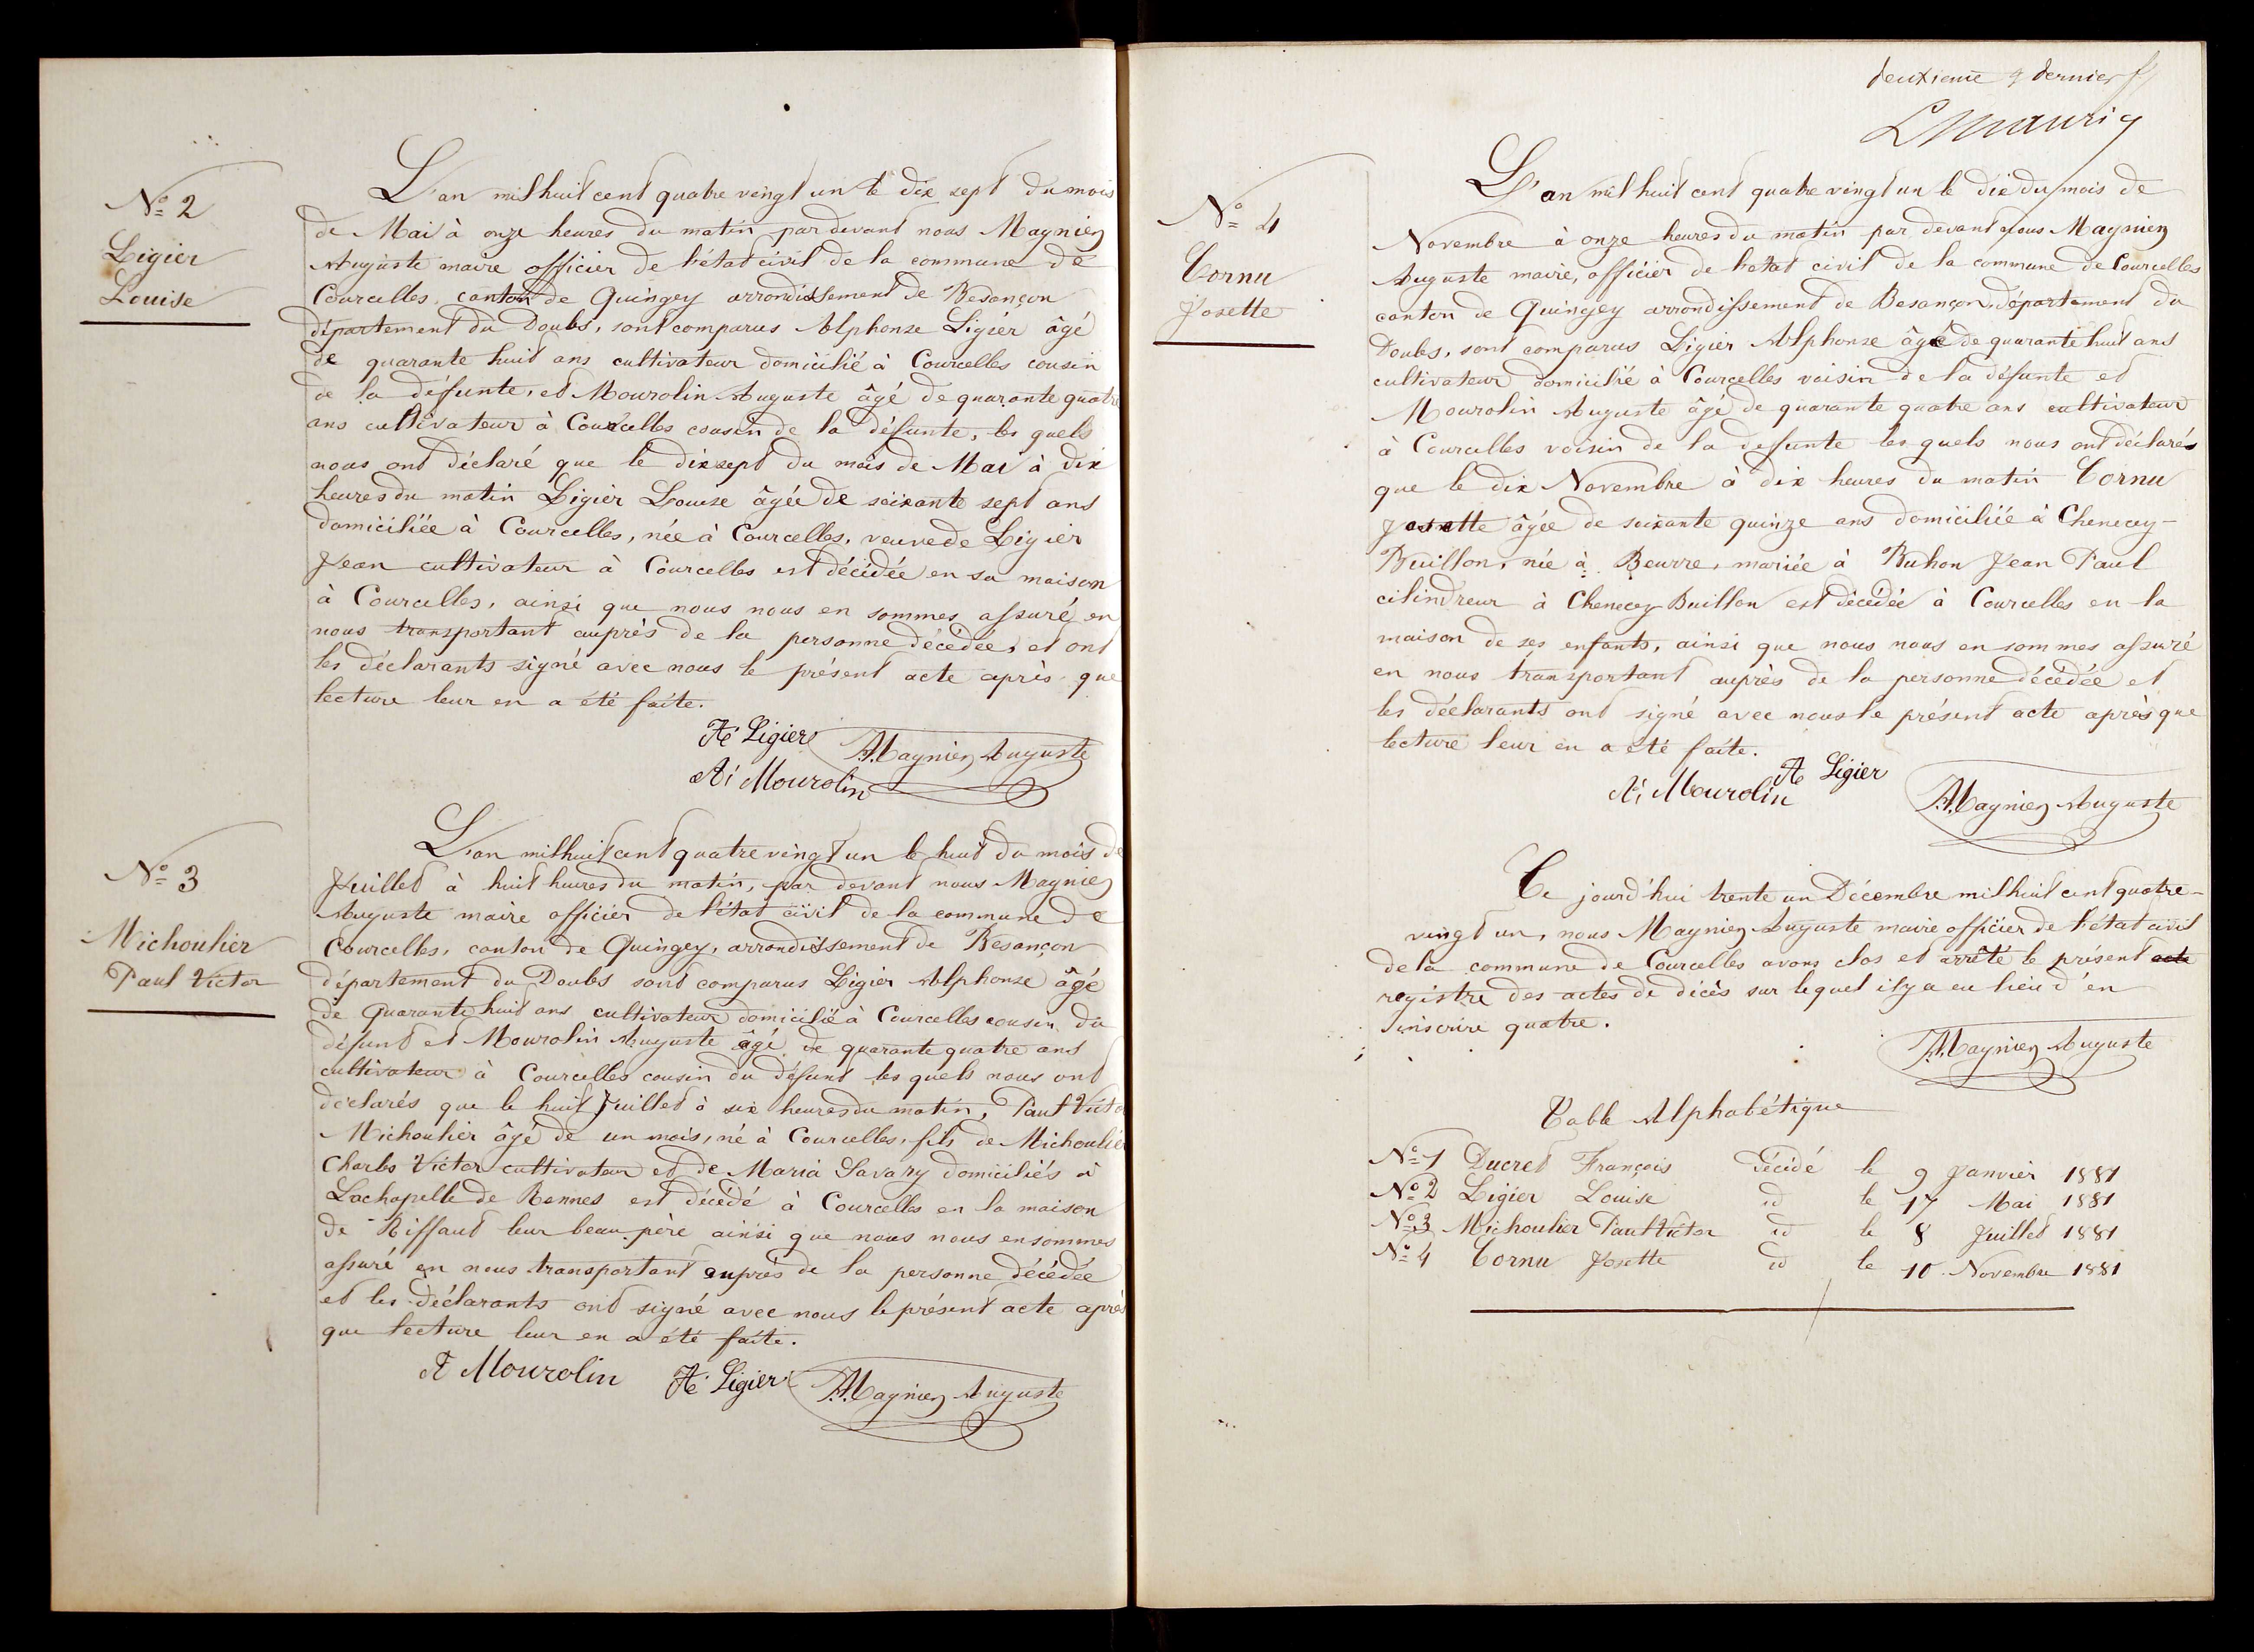 N° 2
Ligier
Louise
L'an mil huit cent quatre vingt un le dix sept du mois
de Mai à onze heures du matin par devant nous Maynier
Auguste maire officier de l'état civil de la commune de
Courcelles, canton de Quingey arrondissement de Besançon
département du Doubs, sont comparus Alphonse Ligier âgé
de quarante huit ans cultivateur domicilié à Courcelles cousin
de la défunte, et Mourolin Auguste âgé de quarante quatre
ans cultivateur à Courcelles cousin de la défunte, les quels
nous ont déclaré que le dix sept du mois de Mai à dix
heures du matin Ligier Louise âgée de soixante sept ans
domiciliée à Courcelles, née à Courcelles, veuve de Ligier
Jean cultivateur à Courcelles est décédée en sa maison
à Courcelles, ainsi que nous nous en sommes assuré en
nous transportant auprès de la personne décédée, et ont
les déclarants signé avec nous le présent acte après que
lecture leur en a été faite.
Ae Ligier
Maynier Auguste
At Mourolin
N° 3
Michoulier
Paul Victor
L'an mil huit cent quatre vingt un le huit du mois de
Juillet à huit heures du matin, par devant nous Maynier
Auguste maire officier de l'état civil de la commune de
Courcelles, canton de Quingey, arrondissement de Besançon
département du Doubs sont comparus Ligier Alphonse âgé
de Quarante huit ans cultivateur domicilié à Courcelles cousin du
défunt et Mourolin Auguste âgé de quarante quatre ans
cultivateur à Courcelles cousin du défunt les quels nous ont
déclarés que le huit Juillet à six heures du matin, Paul Victor
Michoulier âgé de un mois, né à Courcelles, fils de Michoulier
Charles Victor cultivateur et de Maria Savary domiciliés à
Lachapelle de Rennes est décédé à Courcelles en la maison
de Riffaut leur beau père ainsi que nous nous en sommes
assuré en nous transportant auprès de la personne décédée
et les déclarants ont signé avec nous le présent acte après
que lecture leur en a été faite.
At Mourolin Ae Ligier Maynier Auguste
deuxieme & dernier f
N° 4
Cornu
Josette
L'an mil huit cent quatre vingt un le dix du mois de
Novembre à onze heures du matin par devant nous Maynier
Auguste maire, officier de l'état civil de la commune de Courcelles
canton de Quingey arrondissement de Besançon, département du
Doubs, sont comparus Ligier Alphonse âgé de quarante huit ans
cultivateur domicilié à Courcelles voisin de la défunte et
Mourolin Auguste âgé de quarante quatre ans cultivateur
à Courcelles voisin de la defunte les quels nous ont déclarés
que le dix Novembre à dix heures du matin Cornu
Josette âgée de soixante quinze ans domiciliée à Chenecey-
Buillon, née à Beurre, mariée à Buhon Jean Paul
cilindreur à Chenecey Buillon est décédée à Courcelles en la
maison de ses enfants, ainsi que nous nous en sommes assuré
en nous transportant auprès de la personne décédée et
les déclarants ont signé avec nous le présent acte après que
lecture leur en a été faite.
Ae Ligier
At Mourolin
Maynier Auguste
Ce jourd'hui trente un Décembre mil huit cent quatre-
vingt un, nous Maynier Auguste maire officier de l'état civil
de la commune de Courcelles avons clos et arrêté le présent acte
registre des actes de décès sur lequel il y a eu lieu d'en
inscrire quatre.
Maynier Auguste
Table Alphabétique
N° 1 Ducret François décédé le 9 Janvier 1881
N° 2 Ligier Louise id le 17 Mai 1881
N° 3 Michoulier Paul Victor id le 8 Juillet 1881
N° 4 Cornu Josette id le 10 Novembre 1881